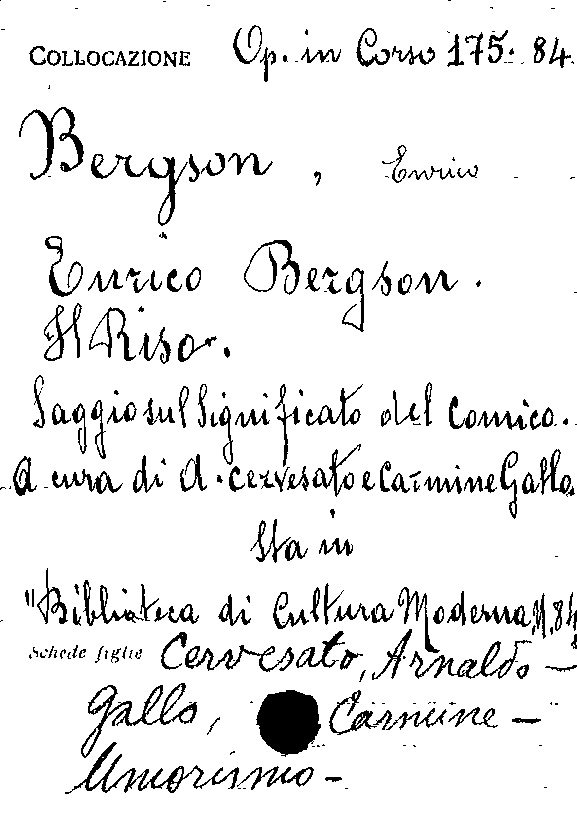 COLLOCAZIONE Op. in Corso 175. 84
Bergson, Enrico
Enrico Bergson.
Il Riso.
Saggio sul Significato del Comico.
A cura di A. Cervesato e Carmine Gallo.
Sta in
"Biblioteca di Cultura Moderna, N. 84
Schede figlie Cervesato, Arnaldo —
Gallo, Carmine —
Umorismo —